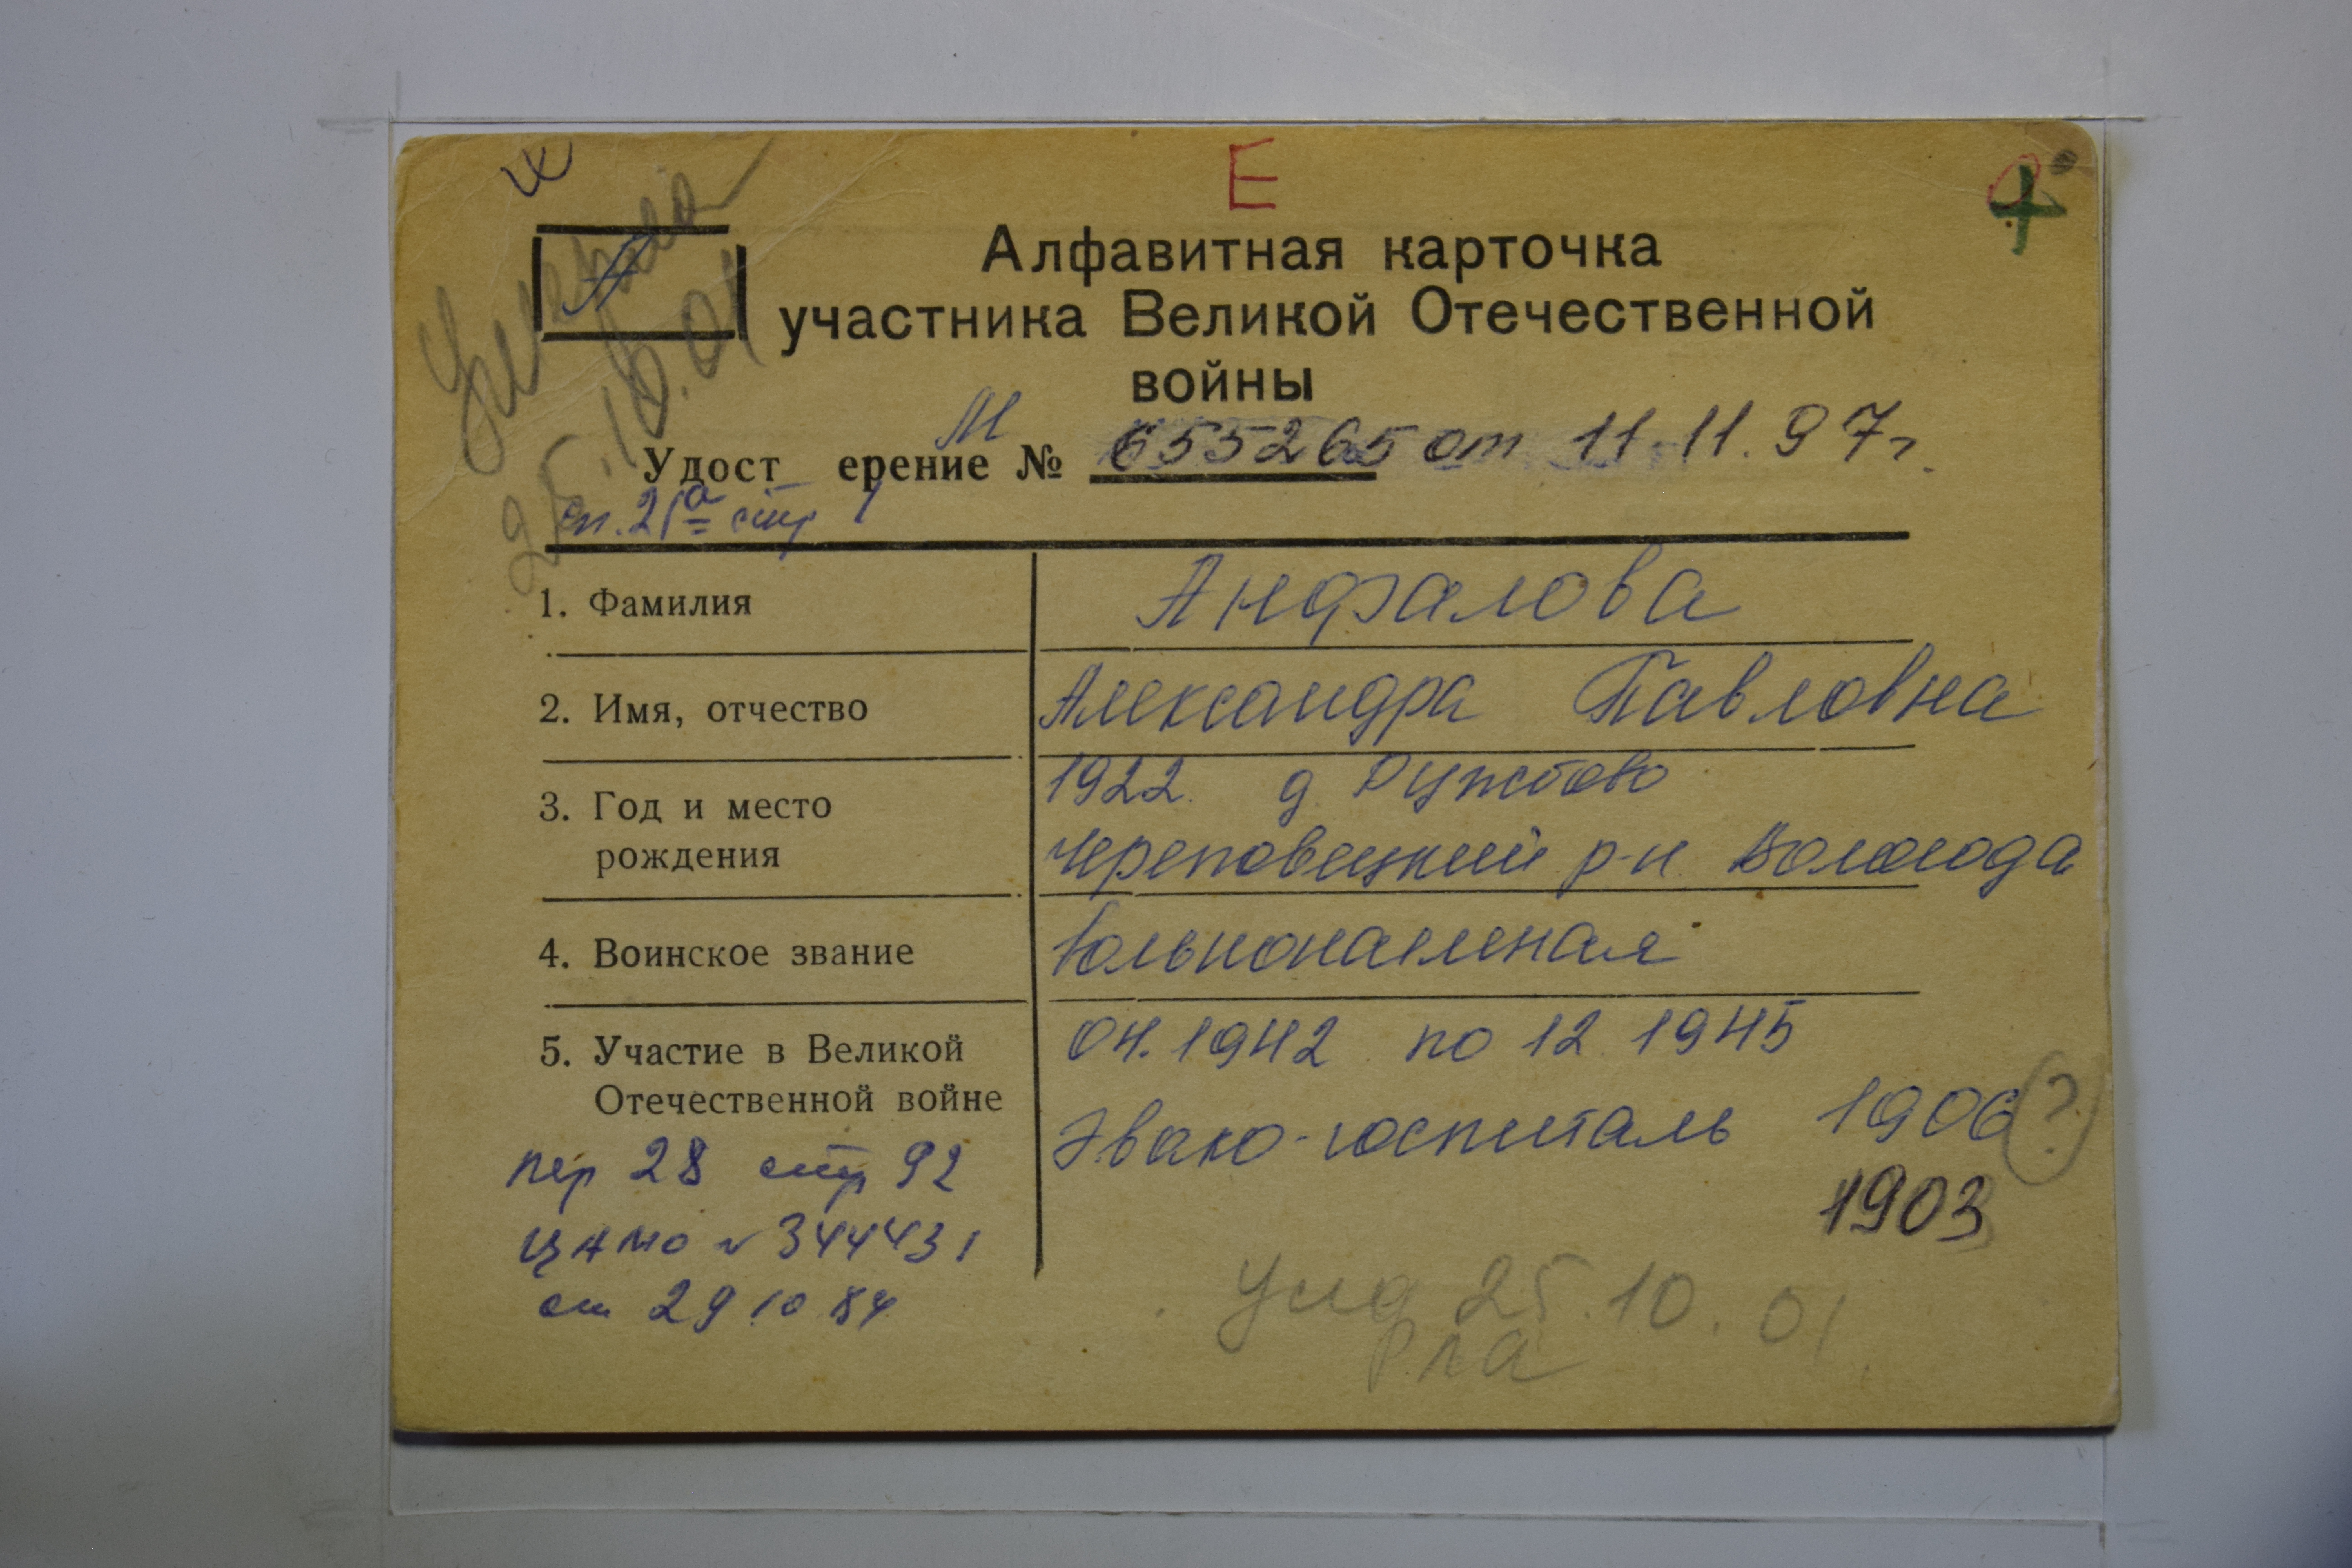 Е
А
Алфавитная карточка
участника Великой Отечественной
войны
М
Удост ерение № 655265 от 11.11.97г.
сп. 21а стр 1
25.10.01
1. Фамилия Анфалова
2. Имя, отчество Александра Павловна
3. Год и место 1922. д.
рождения Череповецкий р-н Вологода
4. Воинское звание Вольнонаемная
5. Участие в Великой 04.1942 по 12 1945
Отечественной войне Эвако-госпиталь 1906 (?)
пер 28 стр 92
1903
ЦАМО № 344431
от 29 10 84
25.10.01